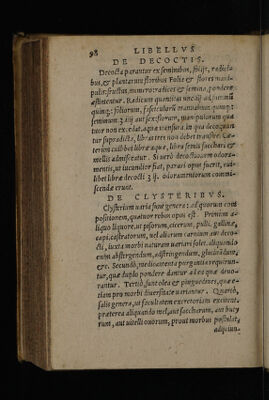 98 LIBELLVS
DE DECOCTIS.
Decocta parantur ex seminibus, succis, radici
bus, & plantarum floribus Folia & flores mani-
pulis: fructus, numero: radices & semina, pondere
æstimentur. Radicum quantitas unciis ad summũ
quinq; : foliorum,
seminum
tuor non excedat, aquæ mensura in qua decoquun-
tur supradicta, libras tres non debet transire. Cæ-
terum cuilibet libræ aquæ, libra semis sacchari et
mellis admiscetur. Si uerò decoctio
mentis, ut iucundior fiat, parari opus fuerit, cui-
libet libræ decocti ʒ ij. odoramentorum commi-
scendæ erunt.
DE CLYSTERIBVS.
Clysterium uaria sunt genera: ad quorum com
positionem, quatuor rebus opus est. Primùm a-
liquo liquore, ut pisorum, cicerum, pulli, gallinæ,
capi, castratorum, uel aliorum carnium aut deco-
cti, iuxta morbi naturam uariari solet. aliquando
enim abstergendum, adstringendum, glutinandum,
&c. Secundò, medicamenta purgantia requirun-
tur, quæ duplo pondere dantur
rantur. Tertiò sunt olea & pinguedines, quæ e-
tiam pro morbi diuersitate uariantur. Quartò,
salis genera, ut facultatem excretoriam excitent.
præterea aliquando mel, aut saccharum, aut buty
rum, aut uitelli ouorum, prout morbus postulat,
adijciun-